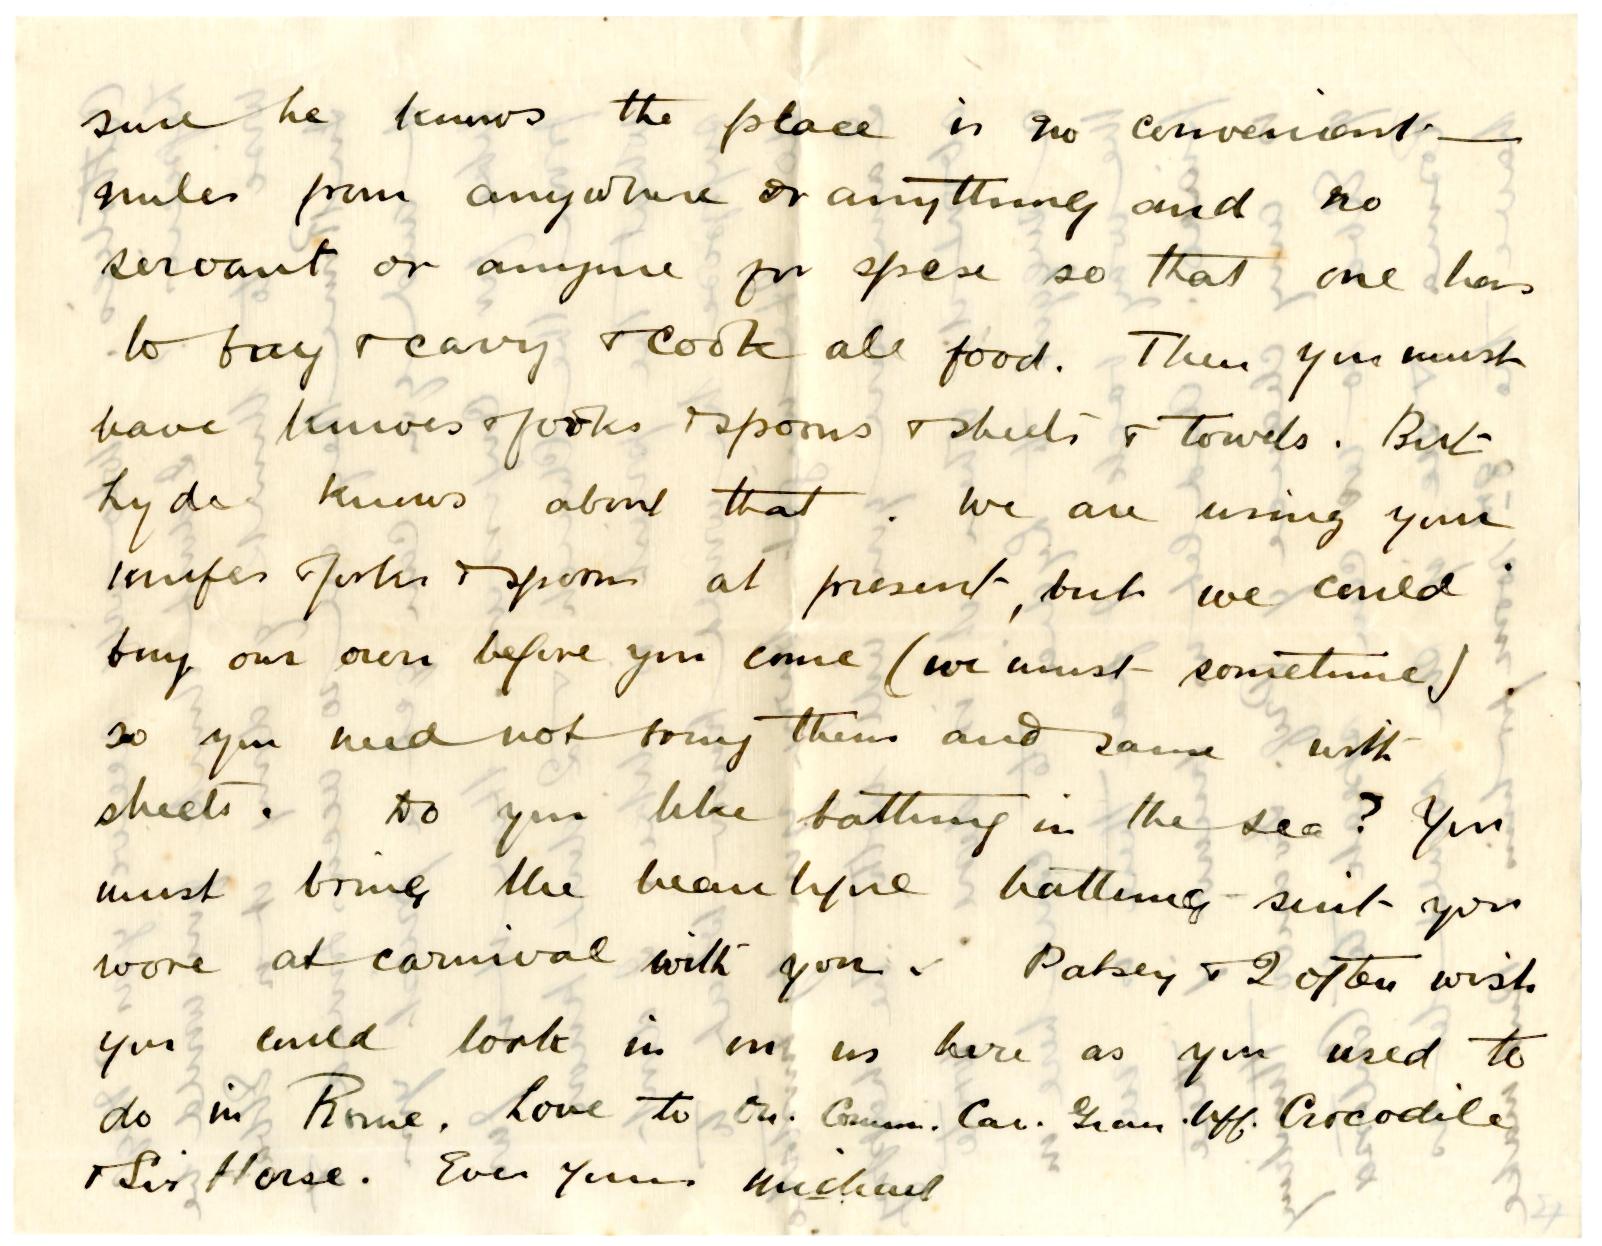 sure he knows the place is no convenient —
miles from anywhere or anything and no
servant or anyone for spese so that one has
to buy & carry & cook all food. Then you must
have knives & forks & spoons & sheets & towels. But
Lyde knows about that. We are using your
knifes & forks & spoons at present, but we could
buy our own before you come (we must sometime)
so you need not bring them and same with
sheets. Do you like bathing in the sea? You
must bring the beautiful bathing-suit you
wore at carnival with you. Patsey & I often wish
you could look in on us here as you used to
do in Rome. Love to On. Comm. Cav. Gran. Uff. Crocodile
& Sir Horse. Ever yours Michael